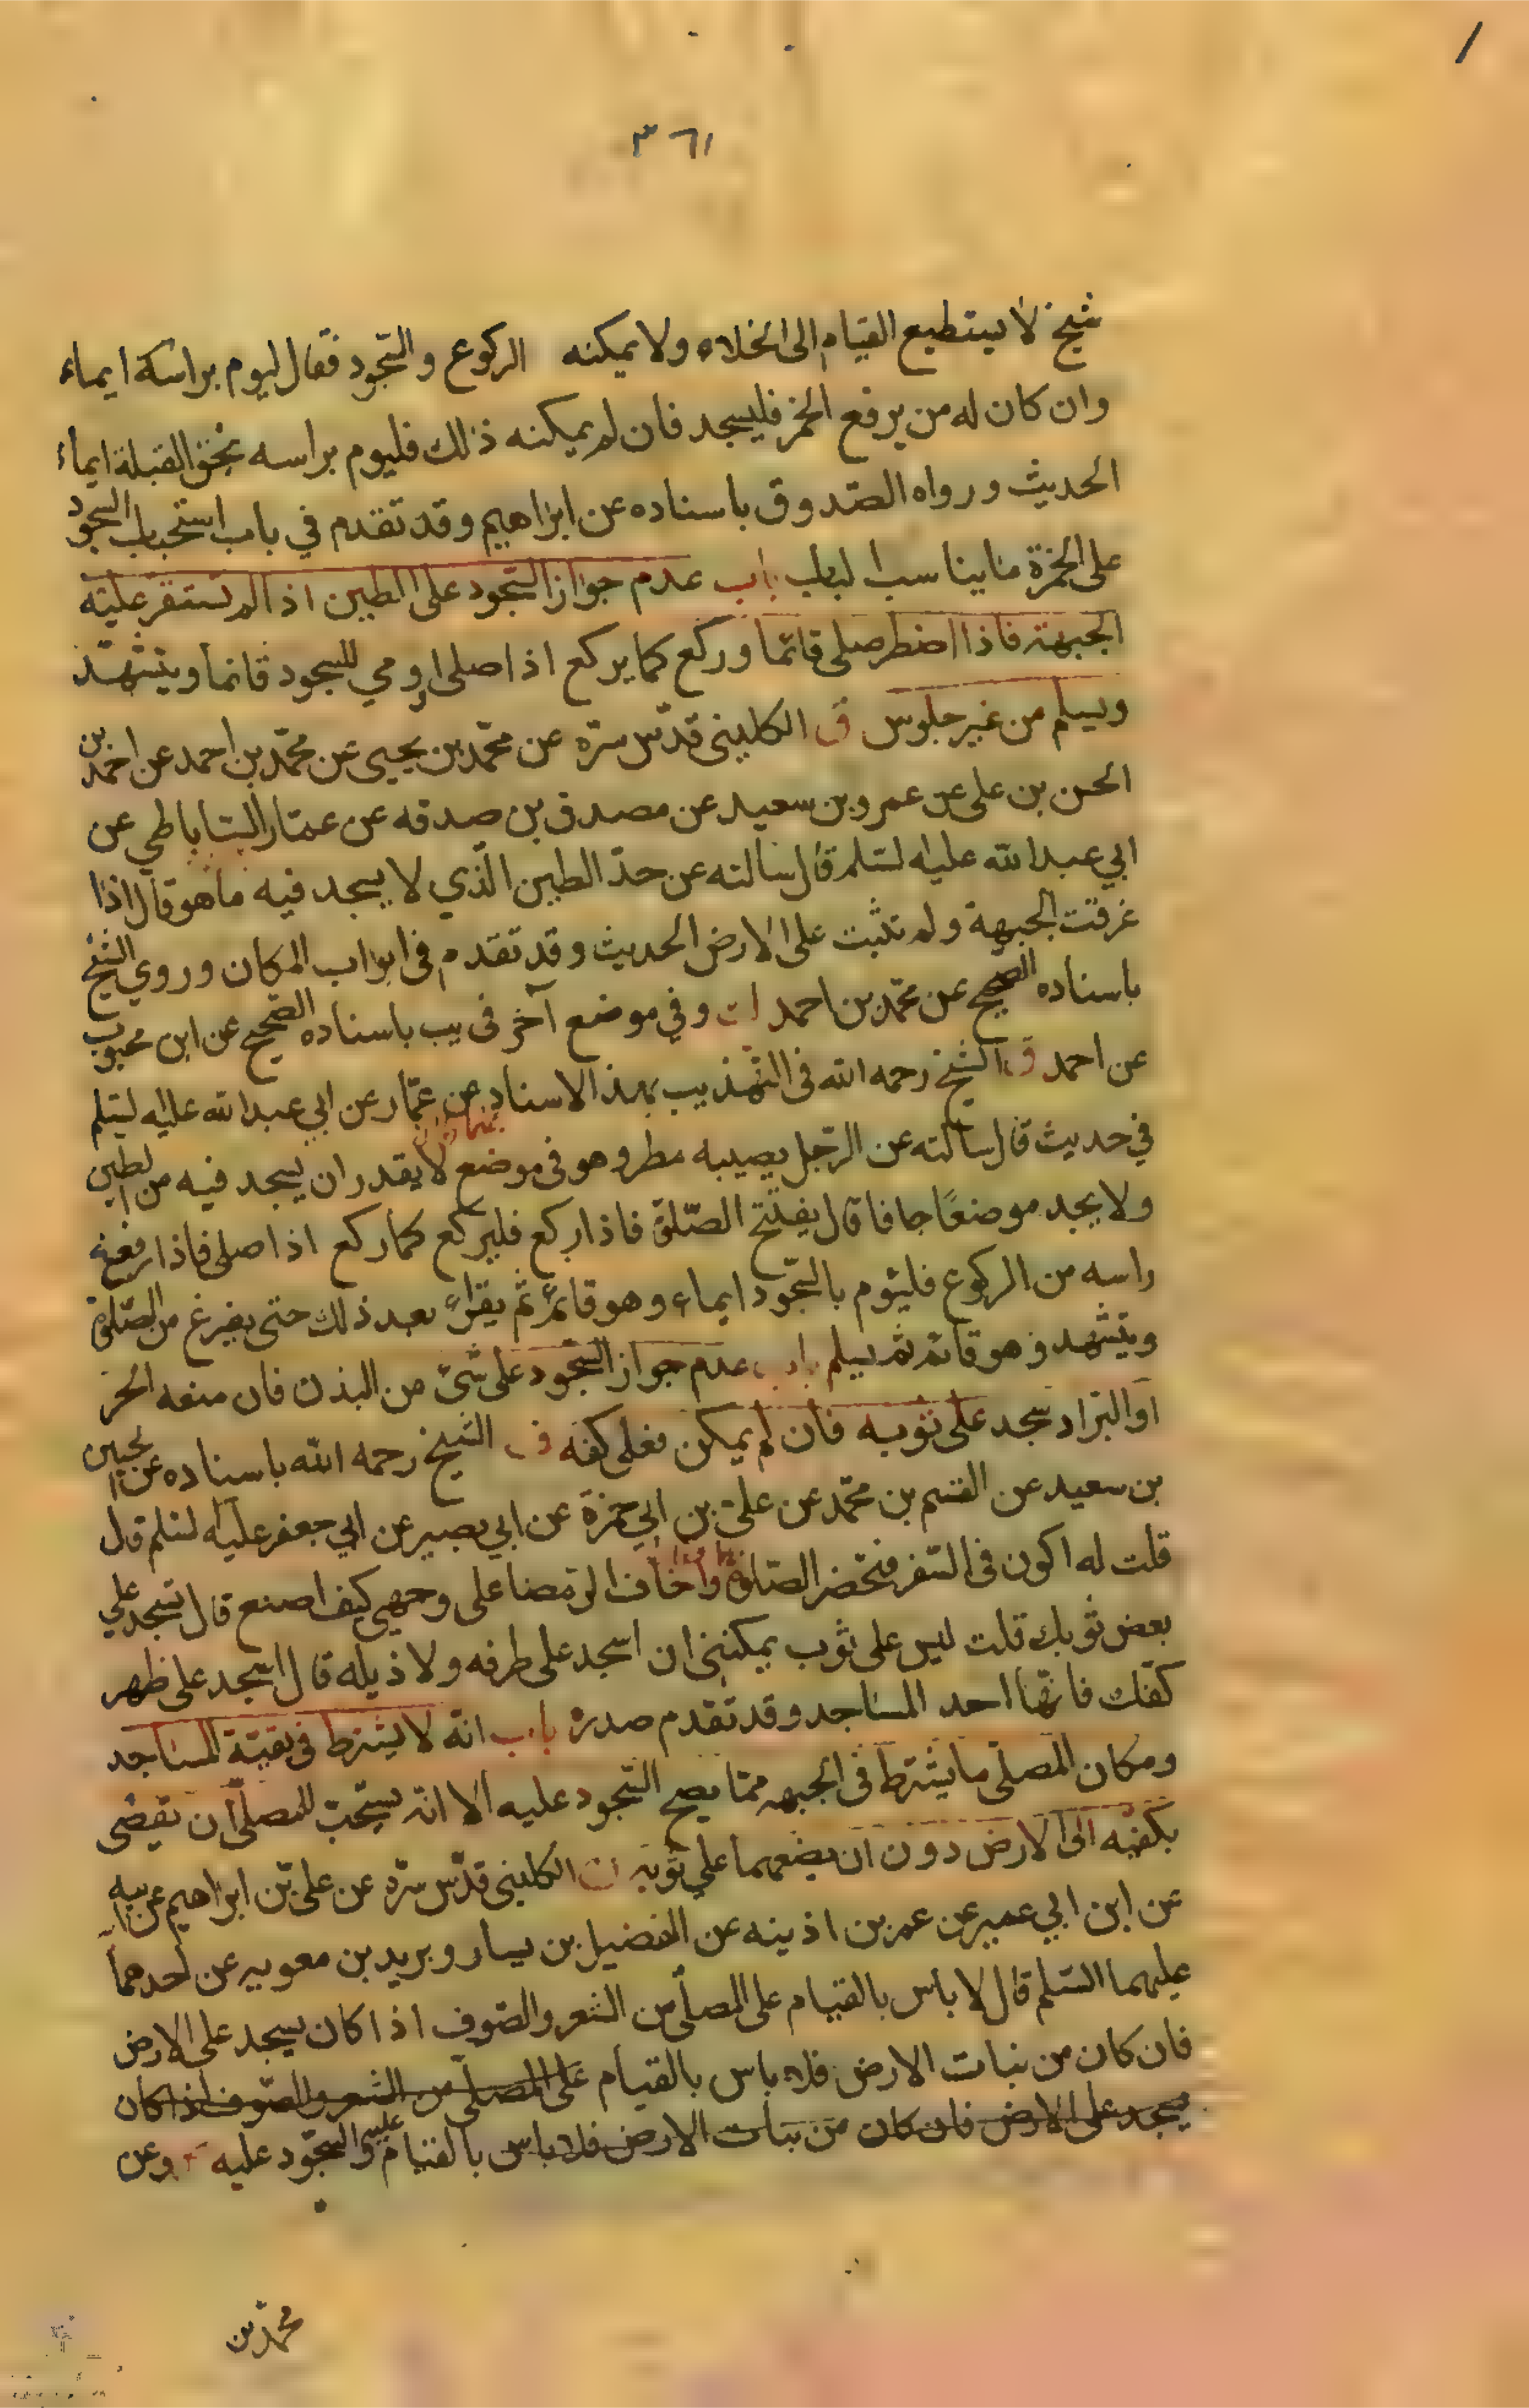 ٣٦١
شيخ لا يستطيع القيام الى الخلاء ولا يمكنه الركوع والسجود فقال ليوم براسه ايماء
وان كان له من يرفع الخمرة فليسجد فان لم يمكنه ذلك فليوم براسه نحو القبلة ايماء
الحديث ورواه الصدوق باسناده عن ابراهيم وقد تقدم في باب استحباب السجود
على الخمرة ما يناسب الباب باب عدم جواز السجود على الطين اذا لم تستقر عليه
الجبهة فاذا اضطر صلى قائما وركع كما يركع اذا صلى اومي للسجود قائما ويتشهد
ويسلم من غير جلوس ق الكليني قدّس سرّه عن محمّد بن يحيى عن محمّد بن احمد عن احمد بن
الحسن بن على عن عمرو بن سعيد عن مصدق بن صدقه عن عمّار الساباطي عن
ابي عبد الله عليه لسّلم قال سالته عن حدّ الطين الّذي لا يسجد فيه ما هو قال اذا
غرقت الجبهة ولم تثبت على الارض الحديث وقد تقدم في ابواب المكان وروي الشيخ
باسناده الصحيح عن محمّد بن احمد وفي موضع آخر في يب باسناده الصحيح عن ابن محبوب
عن احمد ق الشيخ رحمه الله في التهذيب بهذا الاسناد عن عمّار عن ابي عبد الله عليه لسّلم
في حديث قال سالته عن الرّجل يصيبه مطر وهو في موضع لا يقدر ان يسجد فيه من الطين
ولا يجد موضعًا جافا قال يفتتح الصّلوة فاذا ركع فليركع كما ركع اذا صلى فاذا رفع
راسه من الركوع فليؤم بالسّجود ايماء وهو قائم ثم يقرأ بعد ذلك حتى يفرغ من الصّلوة
ويتشهد وهو قائم ثم يسلم باب عدم جواز السّجود على شئ من البدن فان منعه الحر
او البرد سجد على ثوبه فان لم يمكن فعلى كفه ق الشيخ رحمه الله باسناده عن الحسين
بن سعيد عن القسم بن محمّد عن علىّ بن ابي حمزة عن ابي بصير عن ابي جعفر عليه لسّلم قال
قلت له اكون في السّفر فتحضر الصّلوة واخاف الرّمضا على وجهي كيف اصنع قال تسجد على
بعض ثوبك قلت ليس على ثوب يمكنني ان اسجد على طرفه ولا ذيله قال اسجد على ظهر
كفّك فانّها احد المساجد وقد تقدم صدره باب انّه لا يشترط في بقيّة المساجد
ومكان المصلّى ما يشترط في الجبهه ممّا يصح السّجود عليه الا انّه يستحب للمصلّى ان يفضى
بكفيه الى الارض دون ان يضعهما على ثوبه الكليني قدّس سرّه عن على بن ابراهيم عن ابيه
عن ابن ابي عمير عن عمر بن اذينه عن الفضيل بن يسار وبريد بن معويه عن احدهما
عليهما السّلم قال لا باس بالقيام على المصلّى من الشعر والصّوف اذا كان يسجد على الارض
فان كان من نبات الارض فلا باس بالقيام على المصلّى من الشعر والصّوف اذا كان
يسجد على الارض فان كان من نبات الارض فلا باس بالقيام عليه والسّجود عليه وعن
محمّد بن